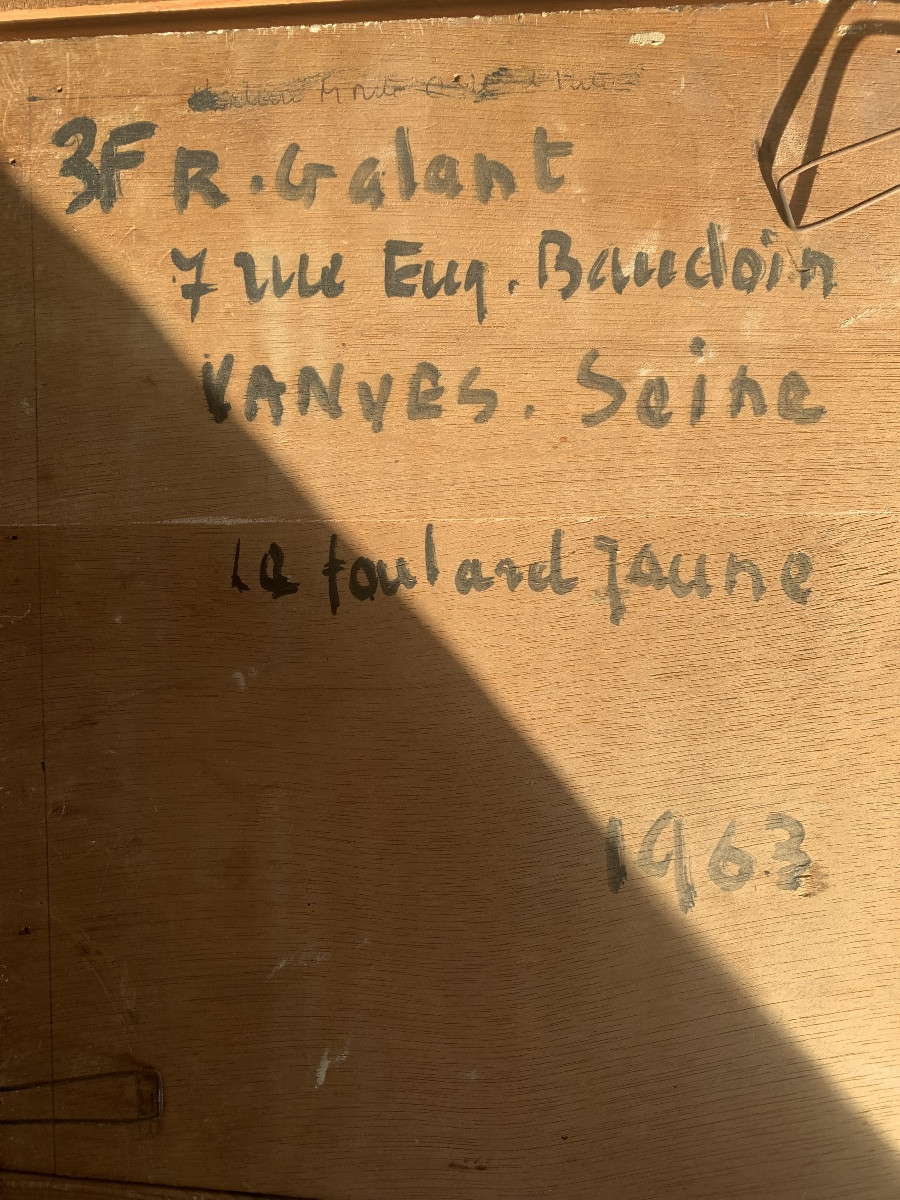 3F R. Galant
7 rue Eug. Baudoin
VANVES. Seine
le foulard jaune
1963